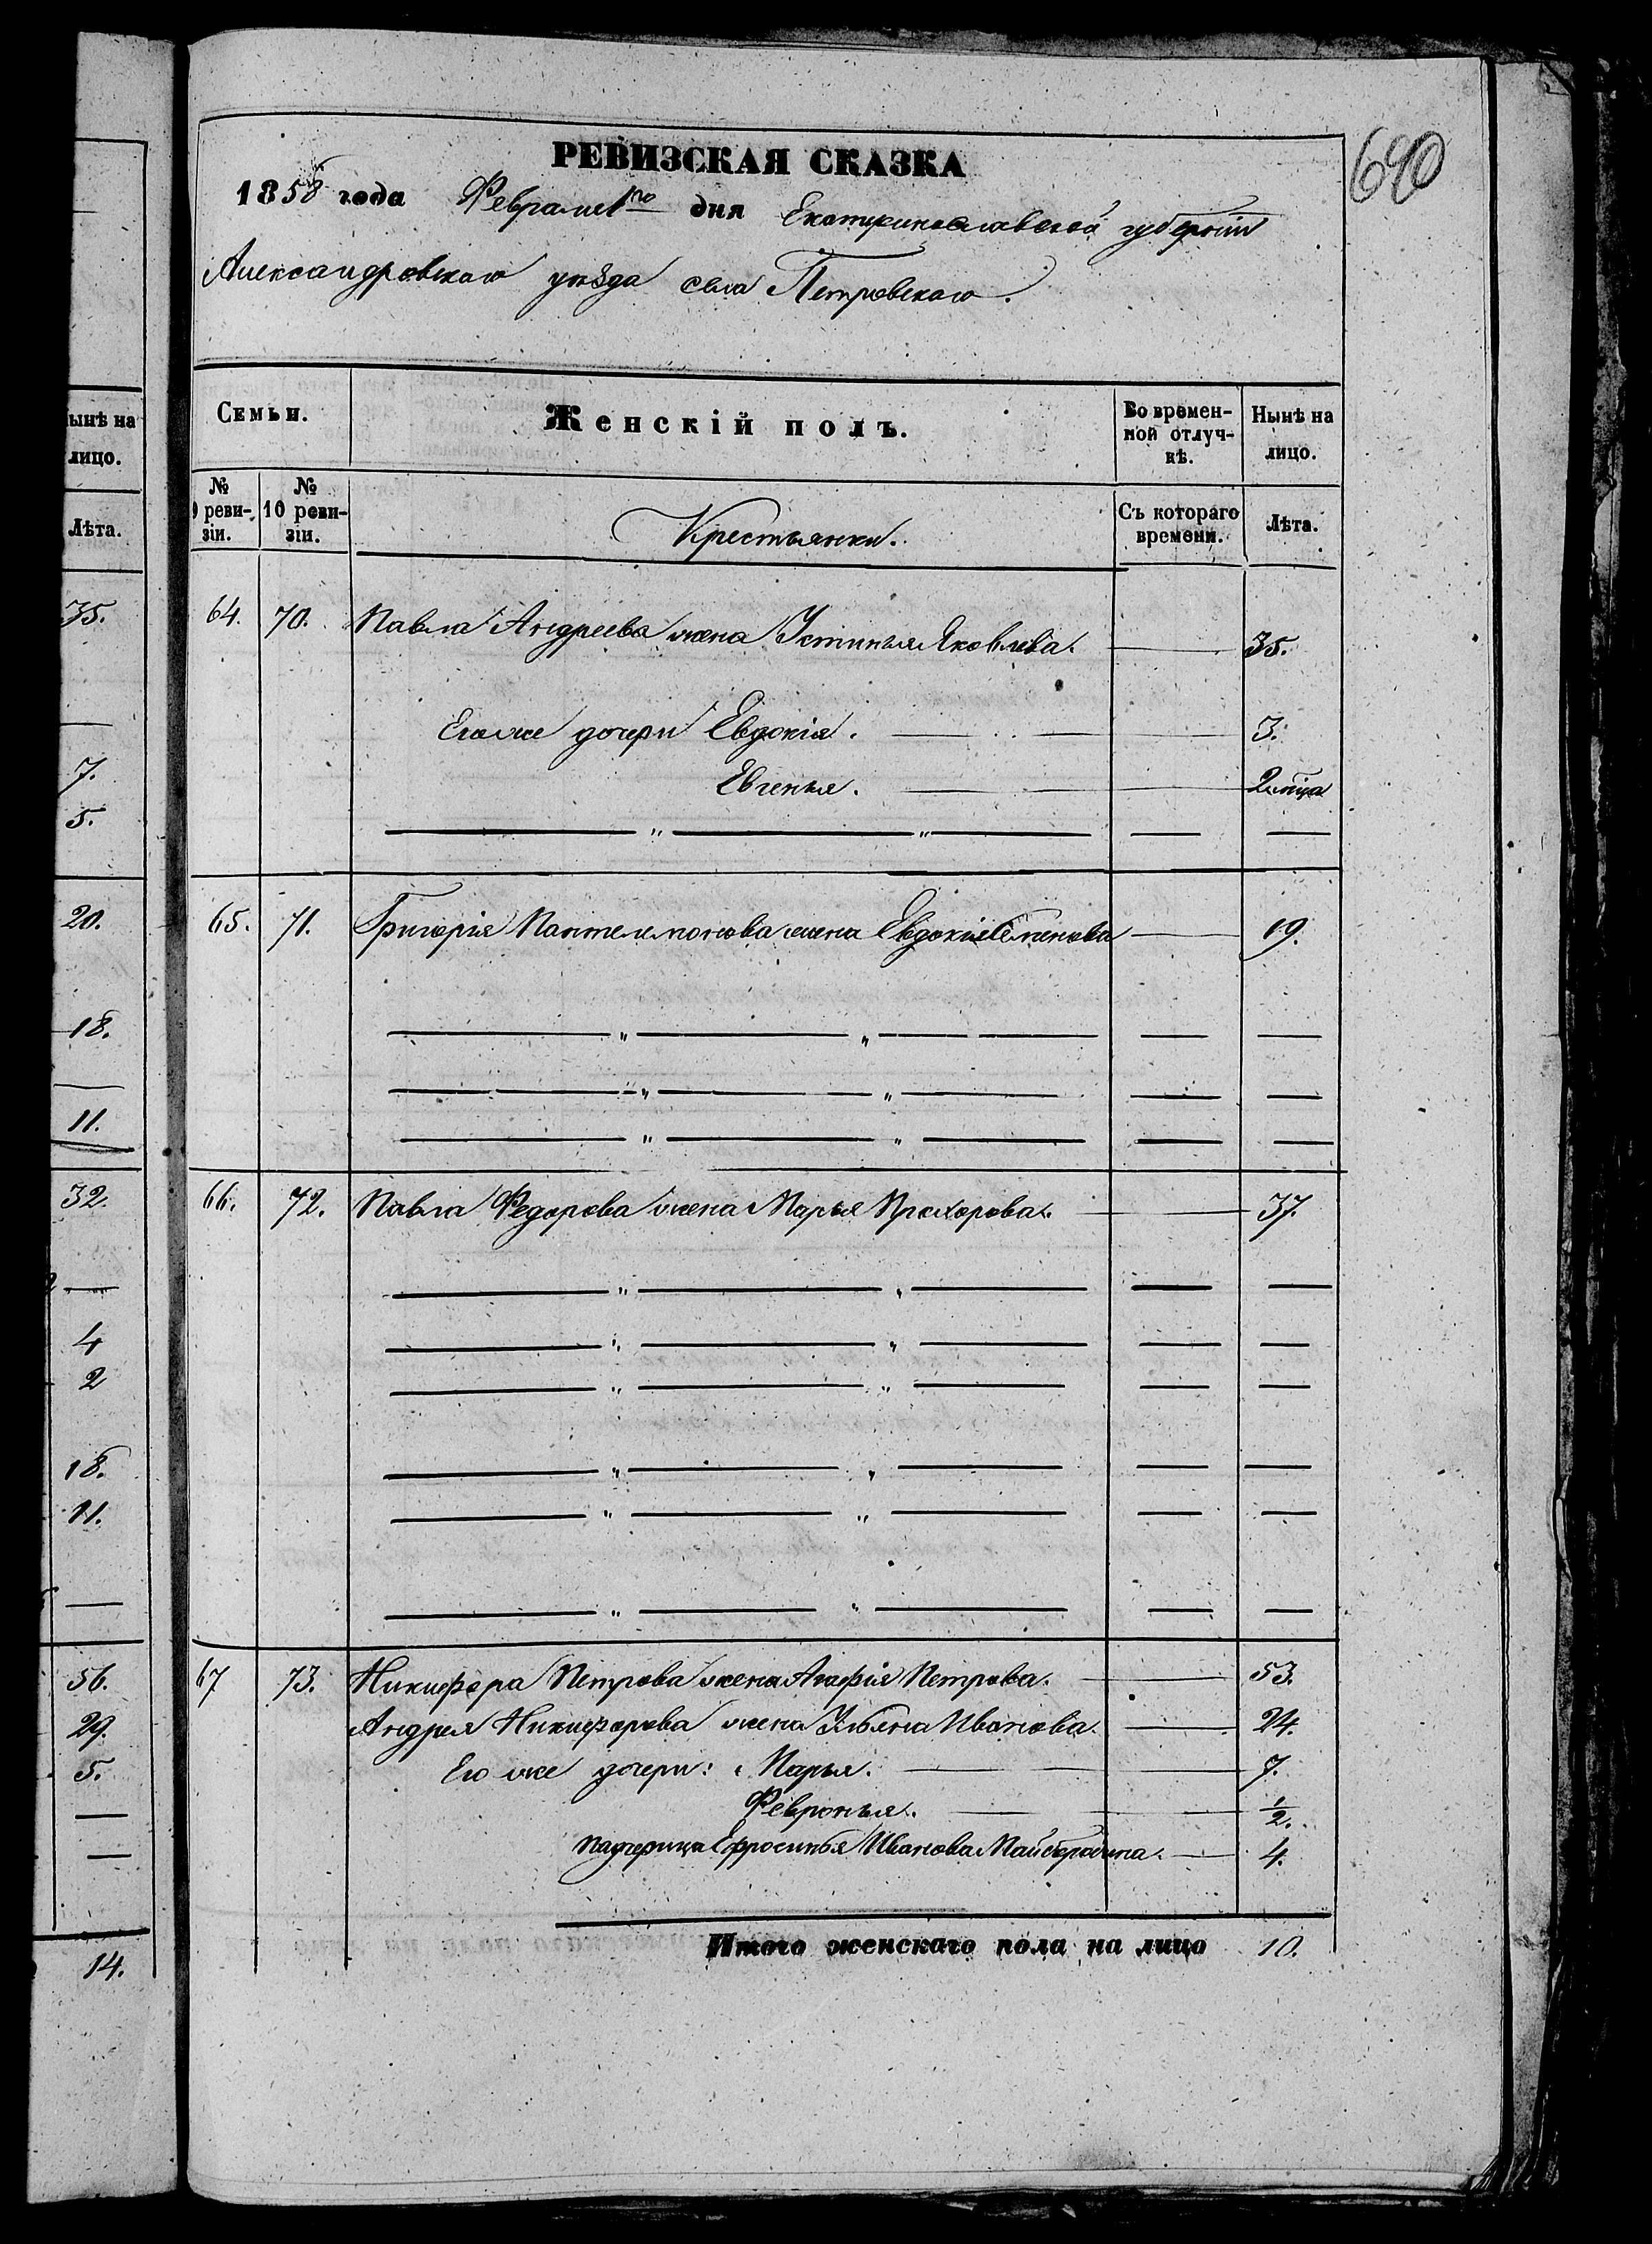 690
РЕВИЗСКАЯ СКАЗКА
1858 года Февраля 1го дня Екатеринославской губерніи
Александровскаго уѣзда села Петровскаго.
Семьи.
Женскій полъ.
Во времен-
ной отлуч-
кѣ.
Нынѣ на
лицо.
№
9 реви-
зіи.
№
10 реви-
зіи.
Крестьянки.
Съ котораго
времени.
Лѣта.
64. 70. Павла Андреева жена Устинья Яковлева. 35.
Его же дочери Евдокія. 3.
Евгенья. 2 мѣца
65. 71. Григорія Пантелемонова жена Евдокія Семенова 19.
66. 72. Павла Федорова жена Марья Прохорова. 37.
67 73. Никифора Петрова жена Агафія Петрова. 53.
Андрея Никифорова жена Ульяна Иванова. 24.
Его же дочери: Марья. 7.
Февронья. 1/2.
падчерица Ефросинья Иванова Майбородина. 4.
Итого женскаго пола на лицо 10.
ынѣ на
лицо.
Лѣта.
35.
7.
5.
20.
18.
11.
32.
4
2
18.
11.
56.
29.
5.
14.